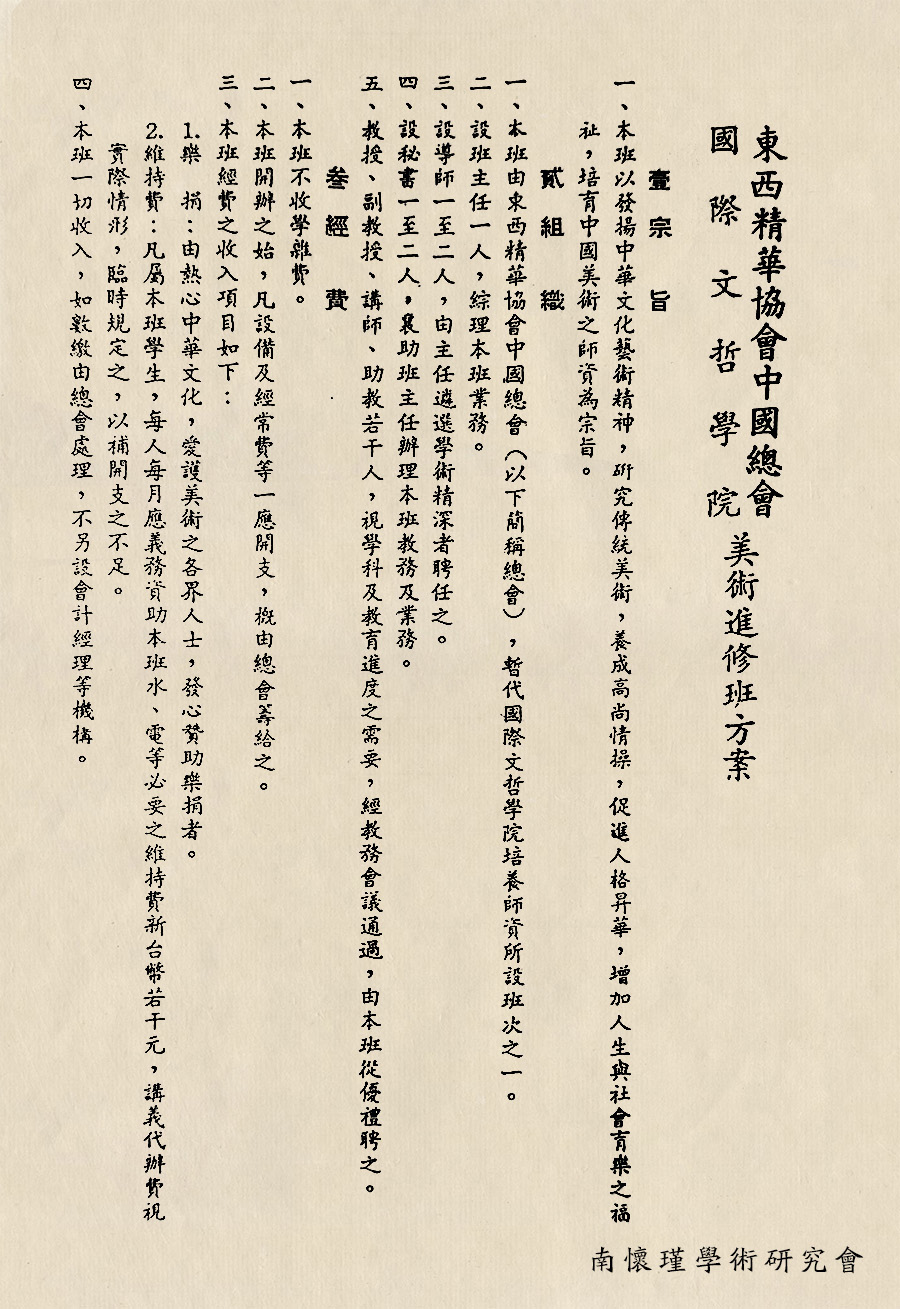 東西精華協會中國總會
國際文哲學院
美術進修班方案
壹宗旨
一、本班以發揚中華文化藝術精神，研究傳統美術，養成高尚情操，促進人格昇華，增加人生與社會育樂之福
祉，培育中國美術之師資為宗旨。
貳組織
一、本班由東西精華協會中國總會（以下簡稱總會），暫代國際文哲學院培養師資所設班次之一。
二、設班主任一人，綜理本班業務。
三、設導師一至二人，由主任遴選學術精深者聘任之。
四、設秘書一至二人，襄助班主任辦理本班教務及業務。
五、教授、副教授、講師、助教若干人，視學科及教育進度之需要，經教務會議通過，由本班從優禮聘之。
叁經費
一、本班不收學雜費。
二、本班開辦之始，凡設備及經常費等一應開支，概由總會籌給之。
三、本班經費之收入項目如下：
1.樂　捐：由熱心中華文化，愛護美術之各界人士，發心贊助樂捐者。
2.維持費：凡屬本班學生，每人每月應義務資助本班水、電等必要之維持費新台幣若干元，講義代辦費視
實際情形，臨時規定之，以補開支之不足。
四、本班一切收入，如數繳由總會處理，不另設會計經理等機構。
南懷瑾學術研究會